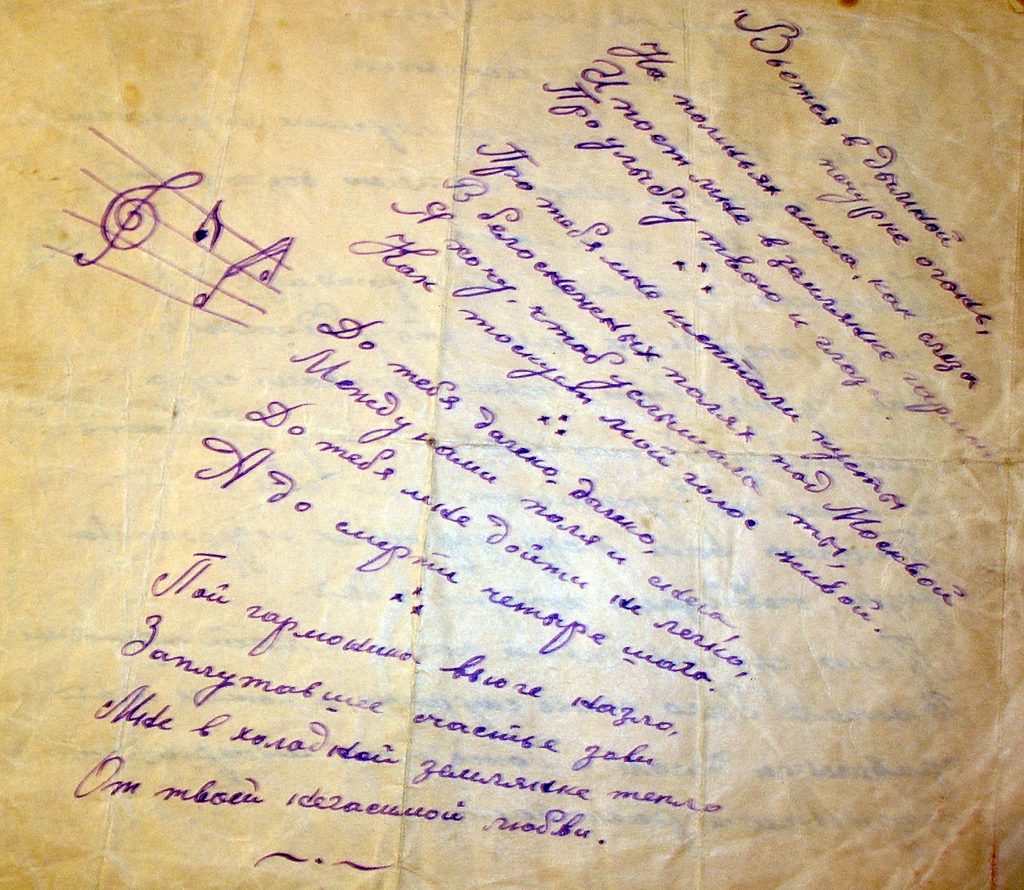 Вьется в дымной
печурке огонь,
На поленьях смола, как слеза
И поет мне в землянке гармонь
Про улыбку твою и глаза.
Про тебя мне шептали кусты
В белоснежных полях под Москвой
Я хочу, чтоб услышала ты,
Как тоскует мой голос живой.
До тебя далеко, далеко,
Между нами поля и снега,
До тебя мне дойти не легко,
А до смерти четыре шага.
Пой гармоника вьюге назло,
Заплутавшее счастье зови
Мне в холодной землянке тепло
От твоей негасимой любви.